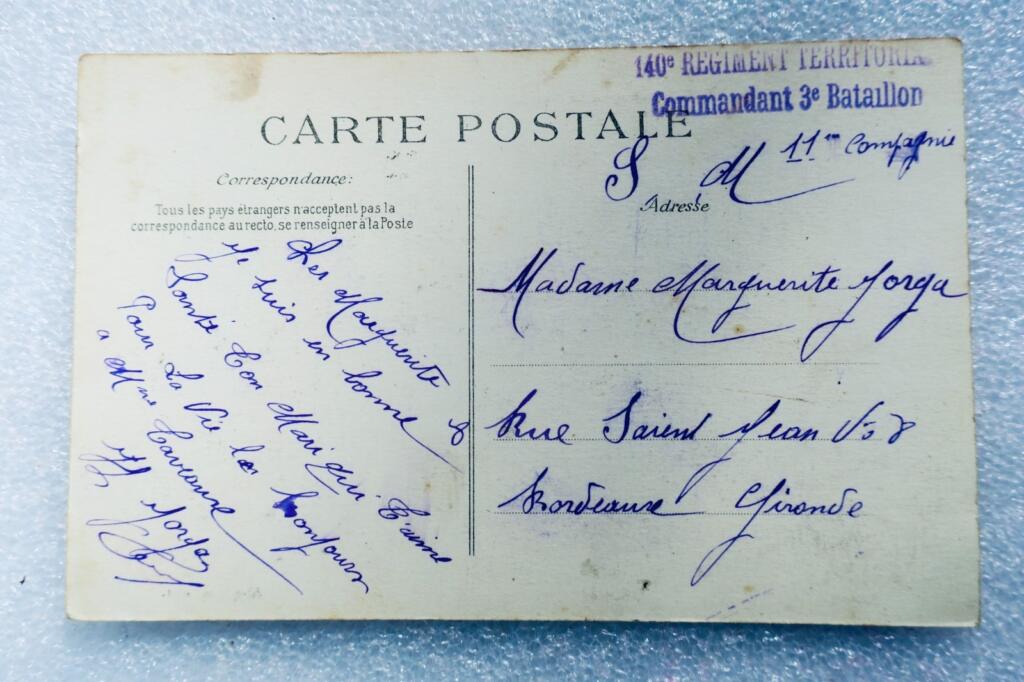 140e REGIMENT TERRITORIA
Commandant 3e Bataillon
CARTE POSTALE
S M 11em Compagnie
Correspondance:
Tous les pays étrangers n'acceptent pas la
correspondance au recto, se renseigner à la Poste
Adresse
Madame Marguerite Jorga
Rue Saient Jean No 8
Bordeaux Gironde
Marguerite
Je suis en bonne
Santé Ton Mari qui t'aime
Pour La Vie le bonjour
a Mme
Jorga